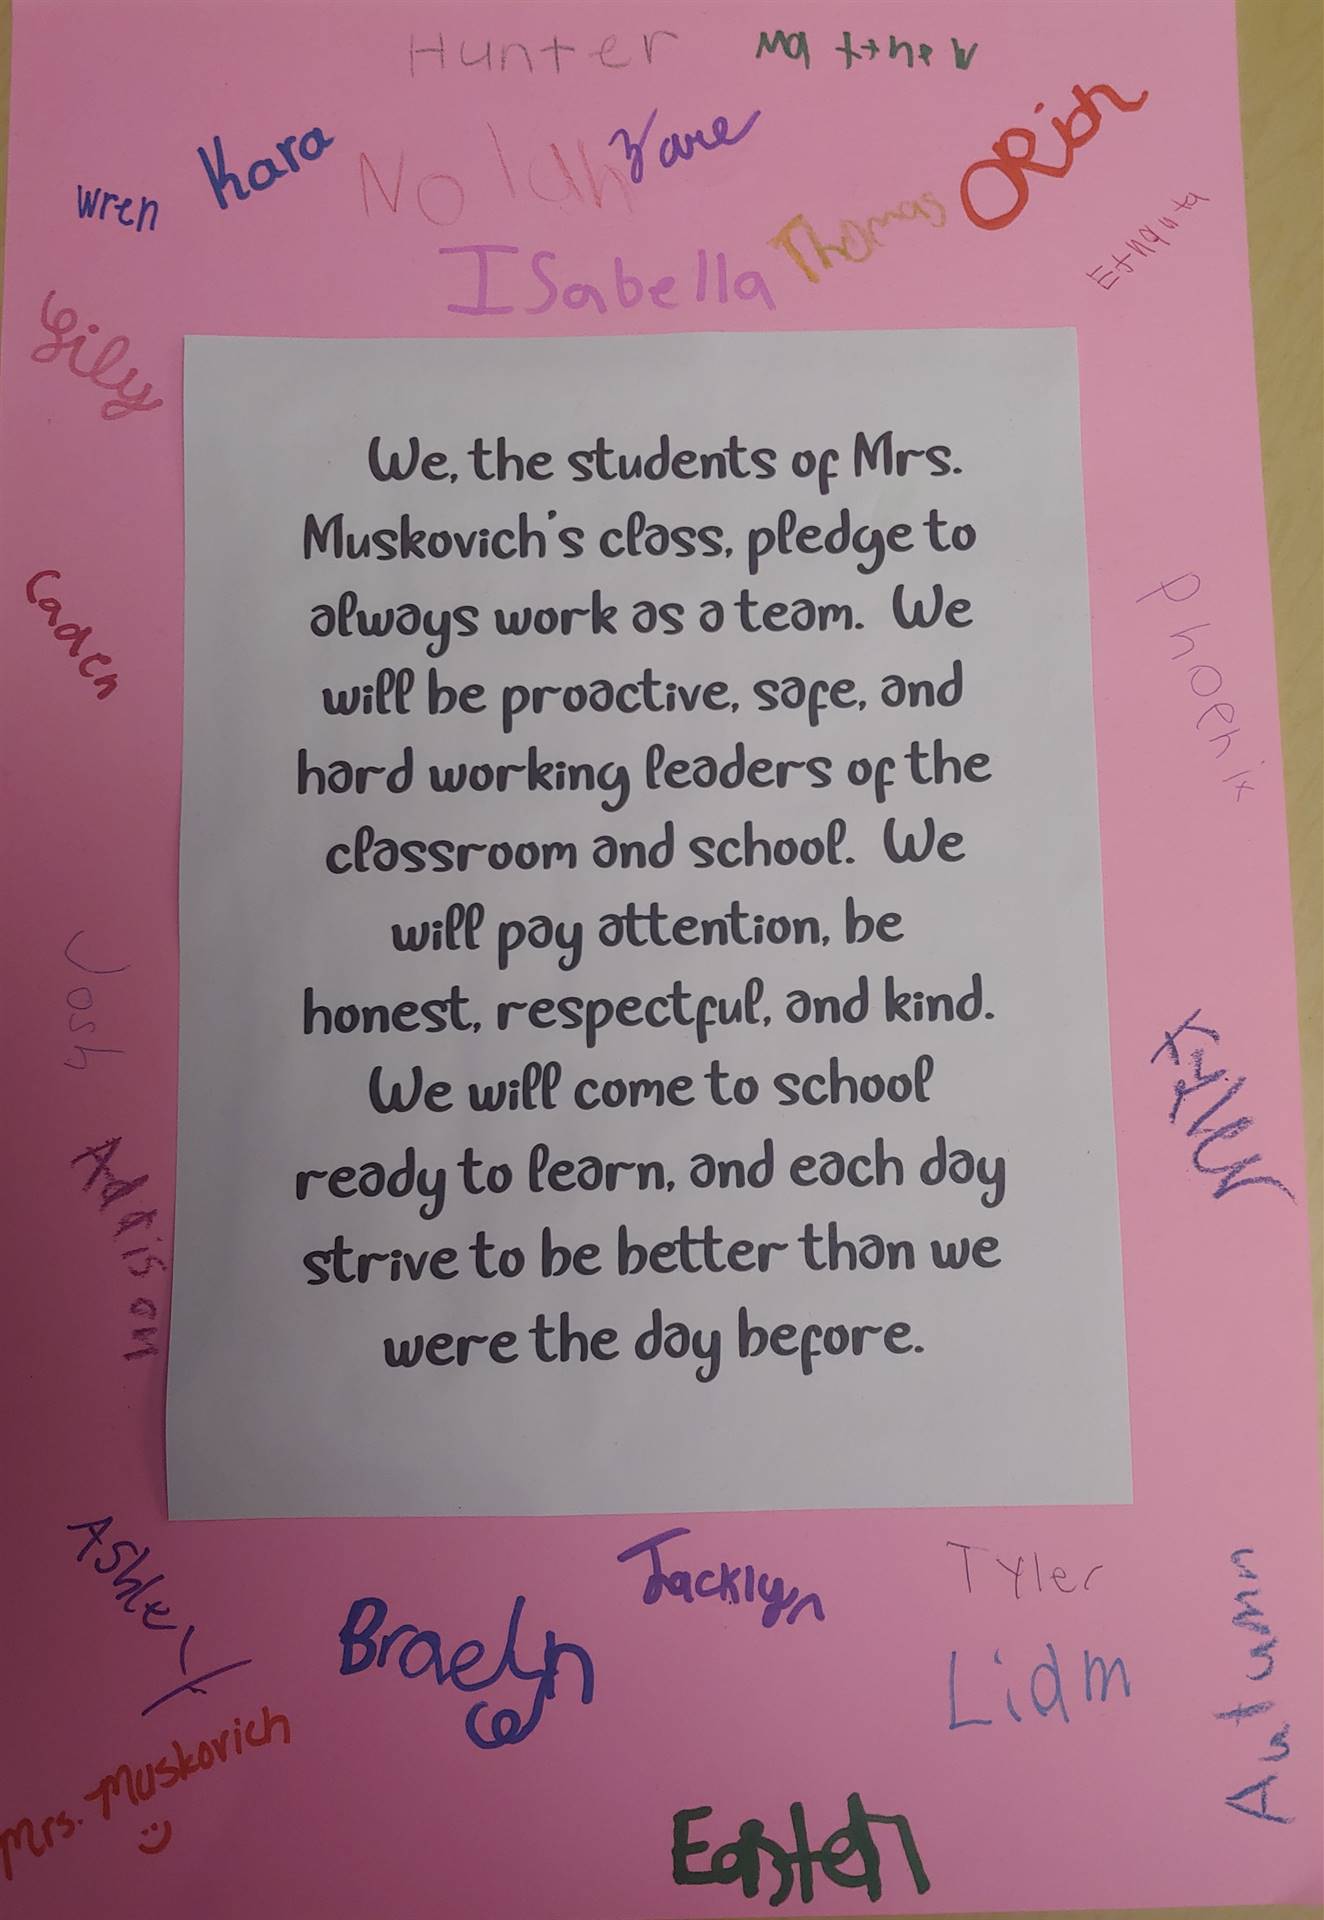 Hunter
Matthew
Wren
Kara
Nolan
Thomas
Isabella
Lily
We, the students of Mrs.
Muskovich's class, pledge to
always work as a team. We
will be proactive, safe, and
hard working leaders of the
classroom and school. We
will pay attention, be
honest, respectful, and kind.
We will come to school
ready to learn, and each day
strive to be better than we
were the day before.
Caden
Phoenix
Josh
Addison
Ashley
Jacklyn
Tyler
Braelyn
Liam
Autumn
Mrs. Muskovich
Easton